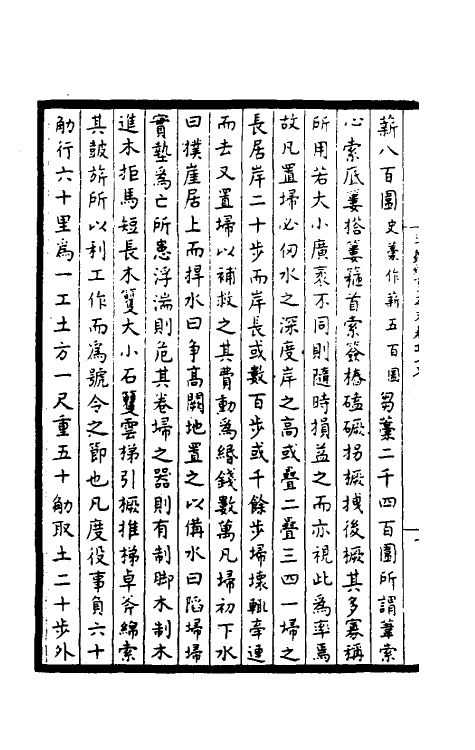 薪八百圍史藁作薪五百圍芻藁二千四百圍所謂葦索
心索底簍搭簍箍首索簽樁磕橛拐橛拽後橛其多寡稱
所用若大小廣袤不同則隨時損益之而亦視此為率焉
故凡置埽必仞水之深度岸之高或疊二疊三四一埽之
長居岸二十步而岸長或數百步或千餘步埽壞輒牽連
而去又置埽以補救之其費動為緡錢數萬凡埽初下水
曰撲崖居上而捍水曰争高闕地置之以備水曰陷埽埽
實墊為亡所患浮湍則危其卷埽之器則有制脚木制木
進木拒馬短長木籰大小石籰雲梯引橛推梯卓斧綿索
其皷旂所以利工作而為號令之節也凡度役事負六十
觔行六十里為一工土方一尺重五十觔取土二十步外